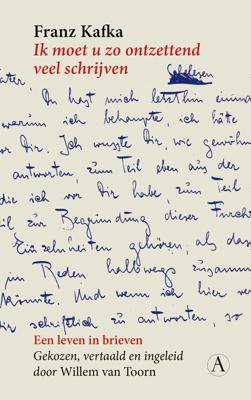 Franz Kafka
Ik moet u zo ontzettend
veel schrijven
Schelesen
ater,
Du hast mich letzthin einma
warum ich behaupte, ich hätte
vor Dir. Ich wusste Dir, wie gewöhn
antworten, zum Teil eben aus de
die ich vor Dir habe zum Teil
eil zur Begründung dieser Furch
Einzelnheiten gehören, als das
im Reden halbwegs zusamm
könnte. Und wenn ich hier ver
dir schriftlich zu antworten, so
Een leven in brieven
Gekozen, vertaald en ingeleid
door Willem van Toorn
A